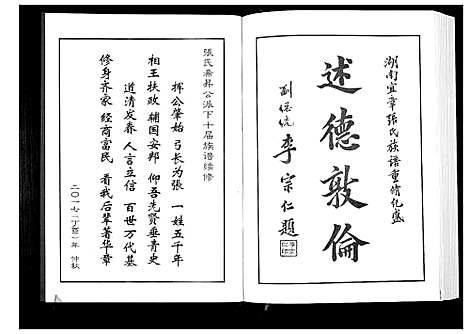 湖南宜章张氏族谱重修纪盛
述德敦伦
副总统 李宗仁题
張氏希昇公派下十届族谱续修
挥公肇始 弓长为張 一姓五千年
相王扶政 辅国安邦 仰吾先贤垂青史
道清发春 人言立信 百世万代基
修身齐家 经商富民 看我后輩著华章
二〇一七(丁酉)年 仲秋